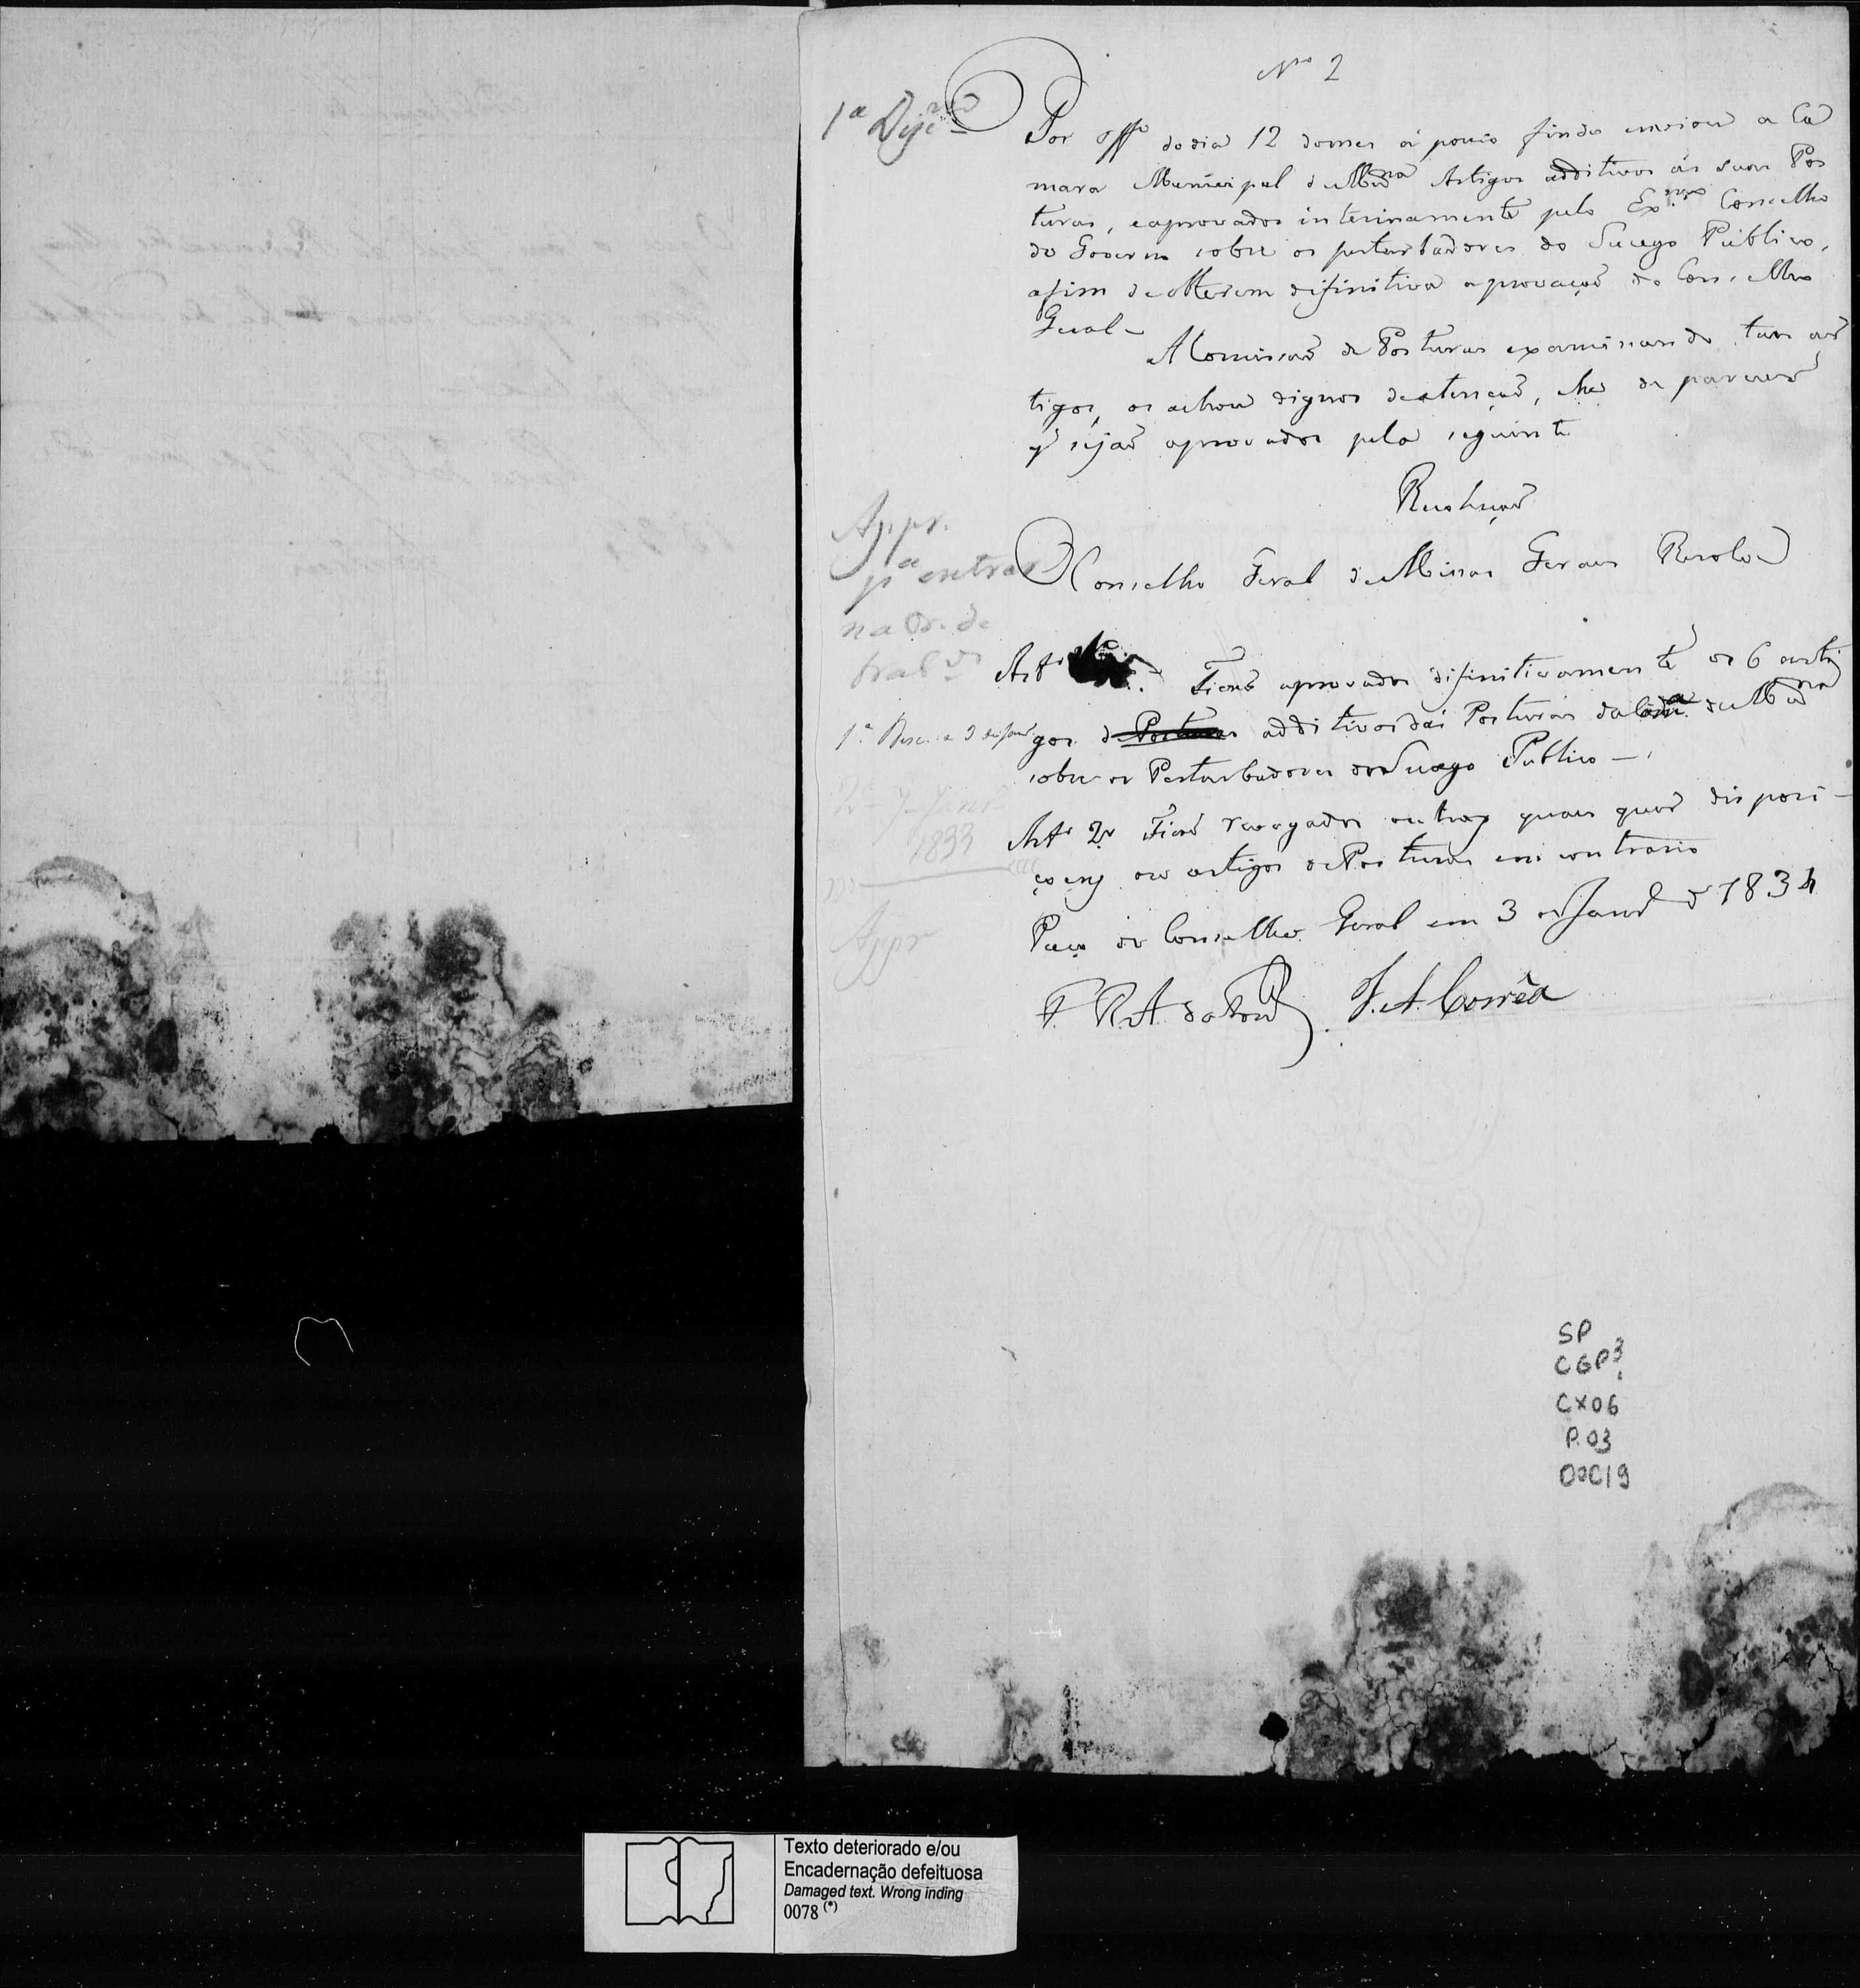 Nº 2
1ª
Por offº do dia 12 do mes á pouco findo enviou a Ca
mara Municipal de Marna Artigos additivos ás suas Pos
turas, e aprovados interinamente pelo Exmo Concelho
do Governo sobre os perturbadores do Sucego Publico,
afim de obterem difinitiva aprovação do Conselho
Geral
A Comissão de Posturas examinando tais ar
tigos, os achou dignos de atenção, e he de parecer
q̃ sejão aprovados pela seguinte
Resolução
Appr.
pª entrar
na Or. de
trab.os
O Conselho Geral de Minas Geraes Resolve
Artº Ficão aprovados difinitivamente os 6 arti
gos de Posturas additivos das Posturas da Camª de Marna
sobre os Perturbadores do Sucego Publico
1ª Disc. a 3 de Janrº
2ª 7 Janrº
1833
Appr
Artº 2º Ficão revogados outras quaes quer disposi-
çoens ou artigos de Posturas em contrario
Paço do Conselho Geral em 3 de Janrº de 1834
F. R. A. da J. A. Corrêa
SP
CGP3
CX06
P.03
DOC19
Texto deteriorado e/ou
Encadernação defeituosa
Damaged text. Wrong inding
0078 (*)